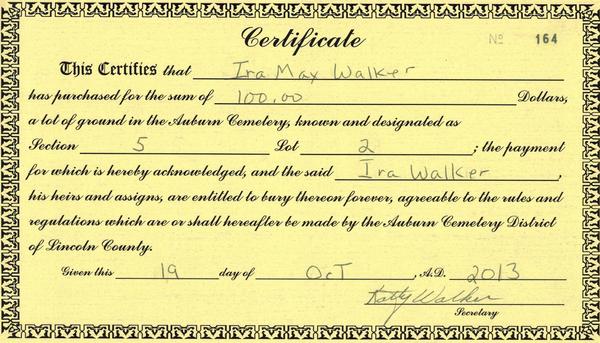 Certificate
No 164
This Certifies that Ira Max Walker
has purchased for the sum of 100.00 Dollars,
a lot of ground in the Auburn Cemetery, known and designated as
Section 5 Lot 2 ; the payment
for which is hereby acknowledged, and the said Ira Walker ,
his heirs and assigns, are entitled to bury thereon forever, agreeable to the rules and
regulations which are or shall hereafter be made by the Auburn Cemetery District
of Lincoln County.
Given this 19 day of Oct , A.D. 2013
Kathy Walker
Secretary